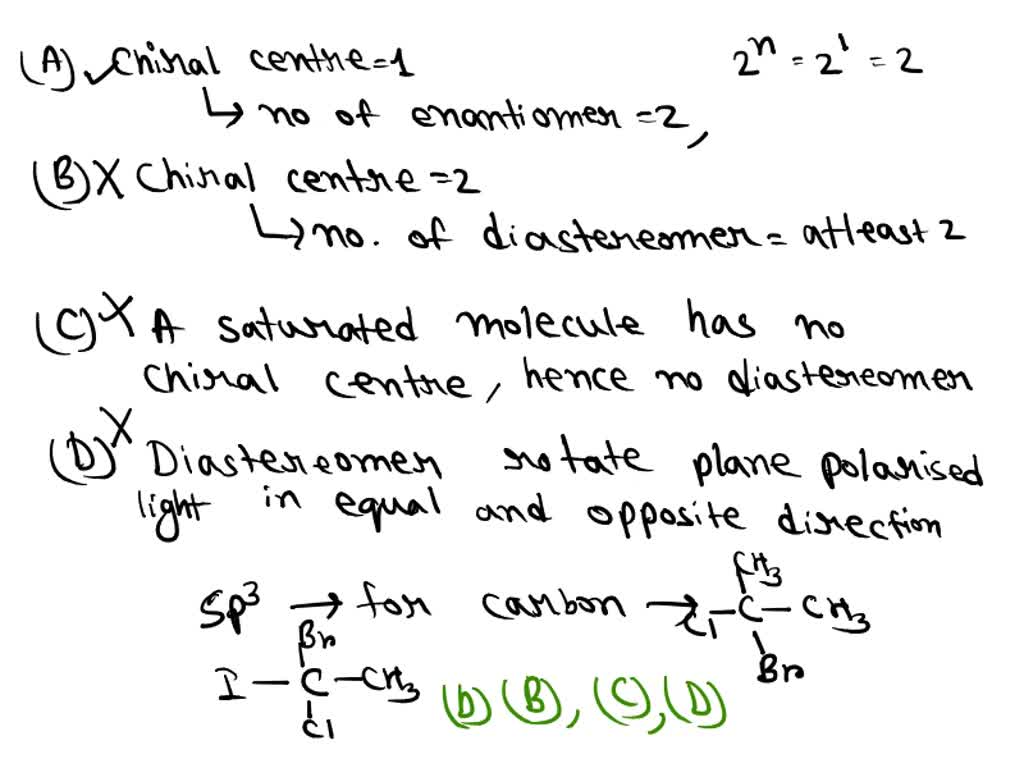 (A) ✓ Chiral centre=1 2ⁿ = 2¹ = 2
↳ no of enantiomer = 2,
(B) X Chiral centre = 2
↳ no. of diastereomer = atleast 2
(C) X A saturated molecule has no
chiral centre, hence no diastereomer
(D) X Diastereomer rotate plane polarised
light in equal and opposite direction
CH₃
Sp³ → for carbon → Cl–C–CH₃
Br
Br
I–C–CH₃
Cl
(D) (B), (C), (D)